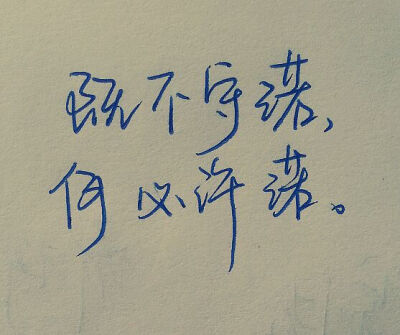 既不守诺，
何必许诺。